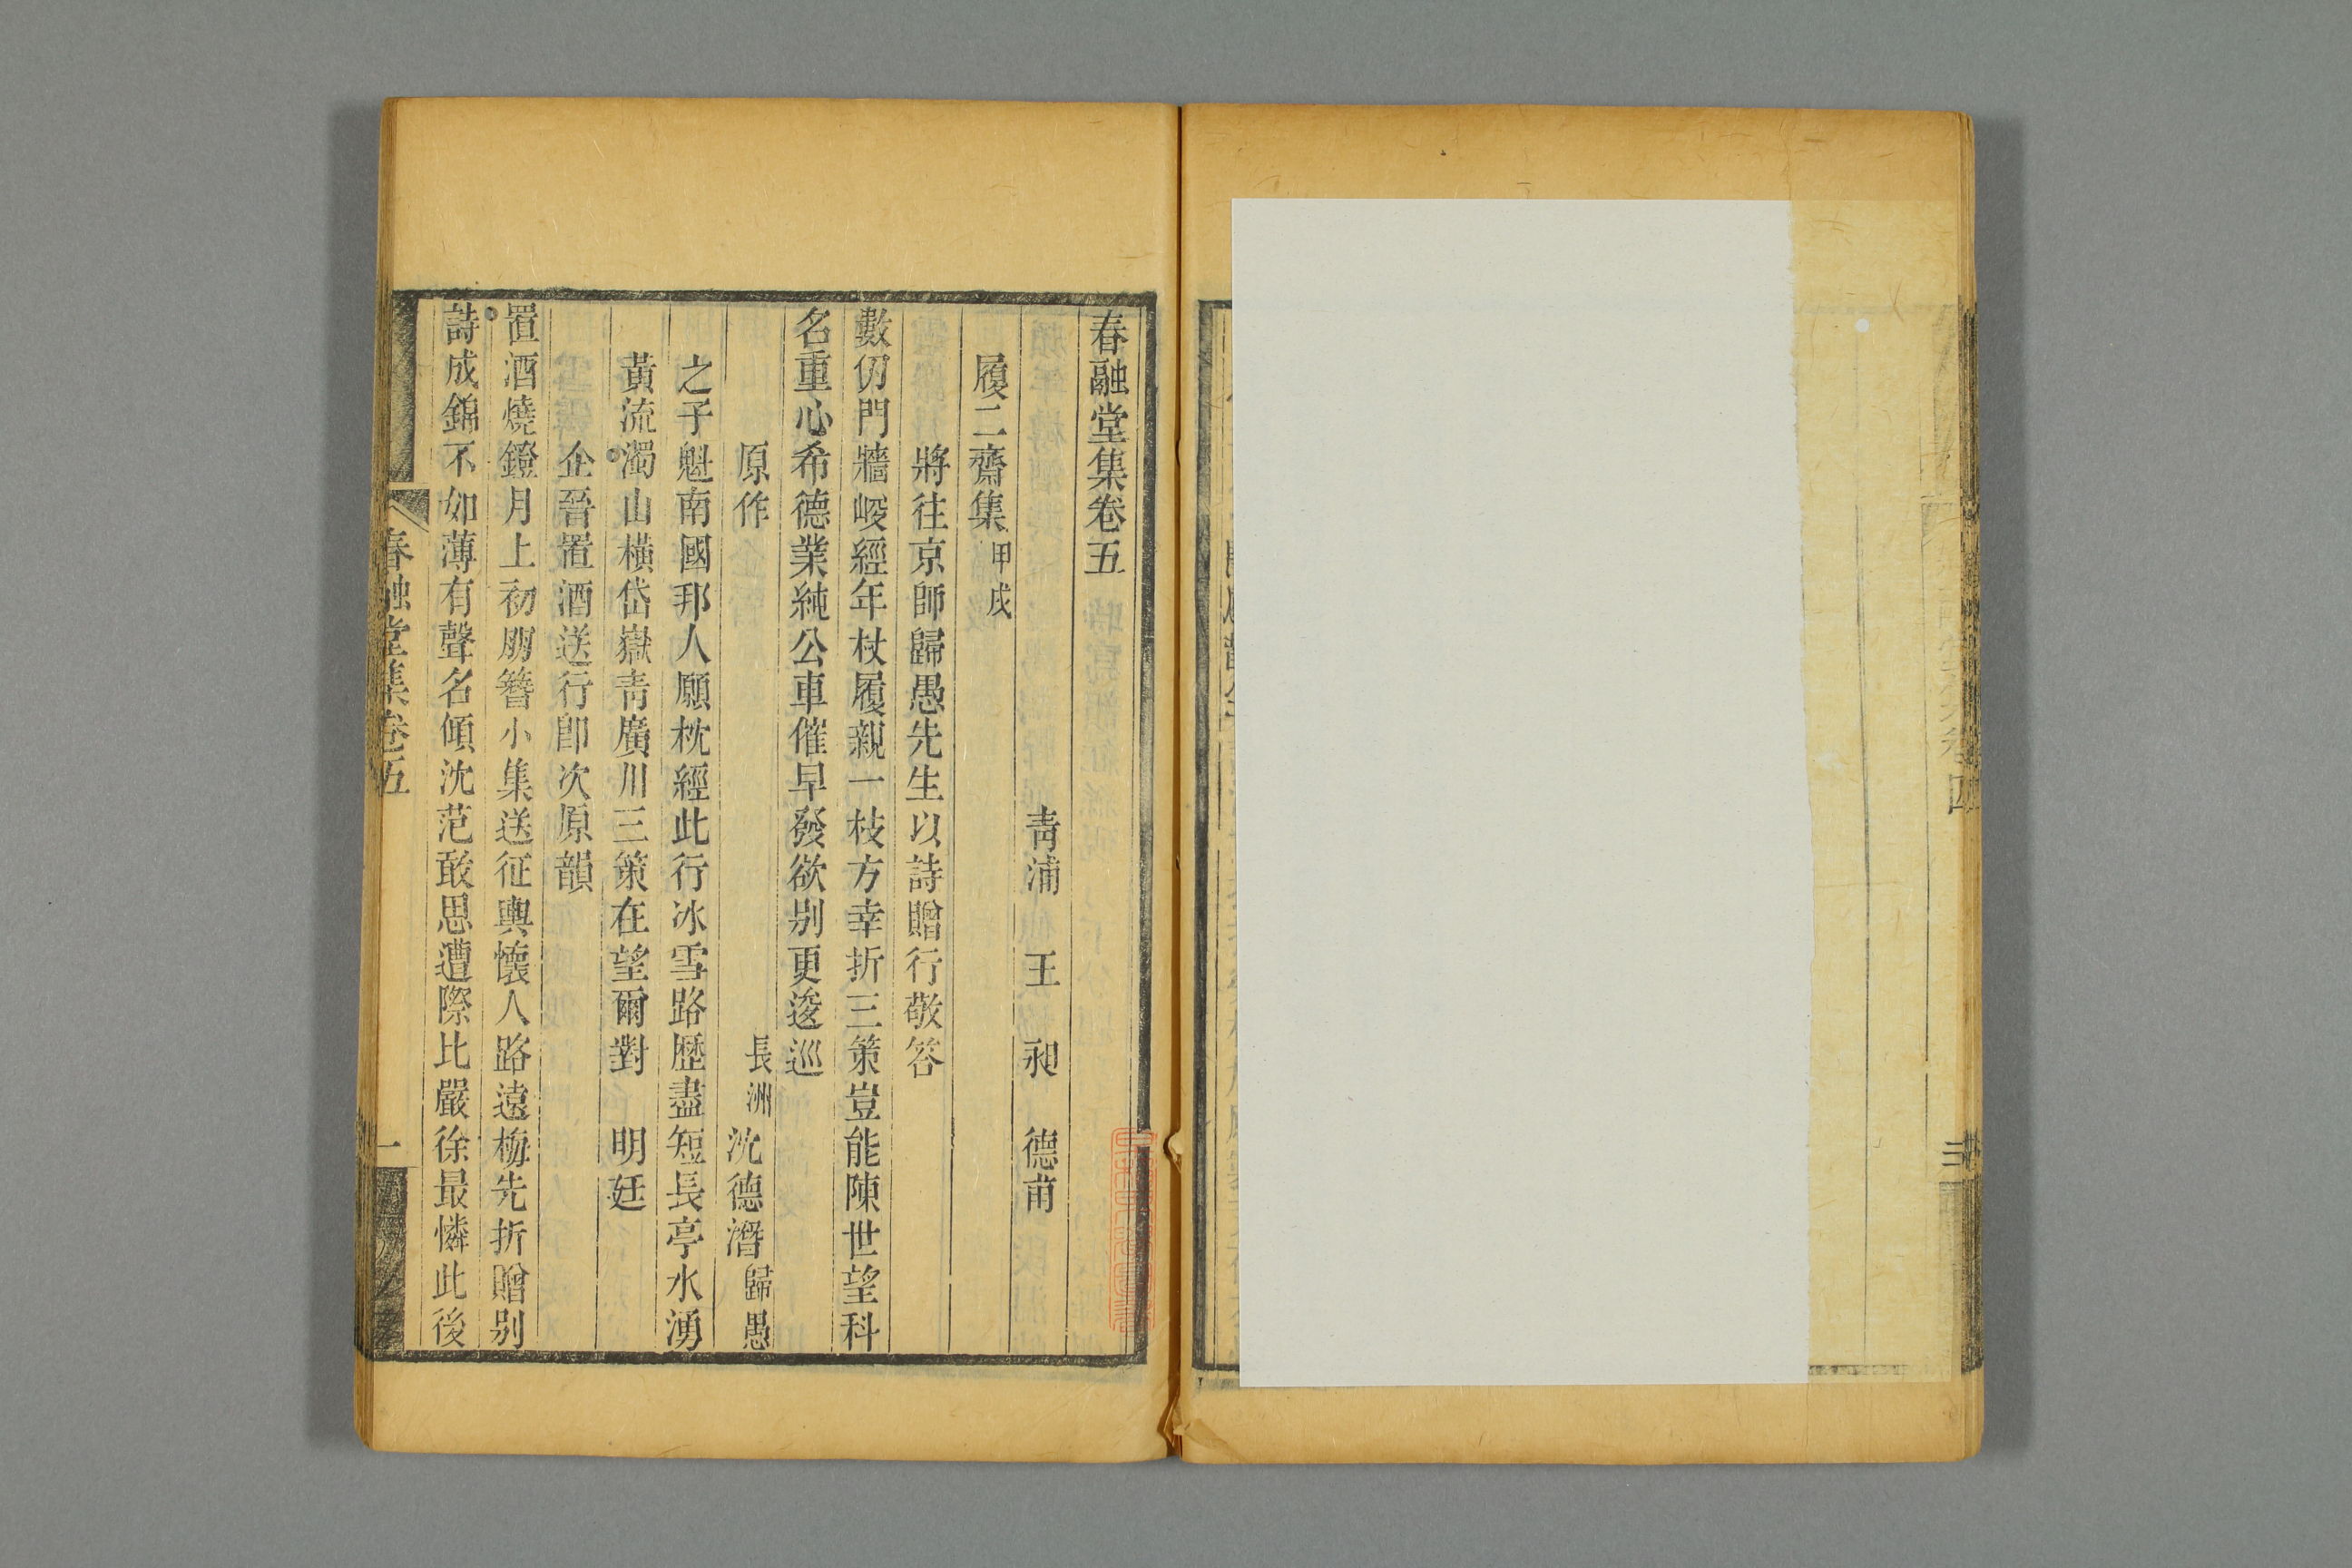 春融堂集卷五
青浦　王　昶　德甫
履二齋集甲戌
將往京師歸愚先生以詩贈行敬答
數仞門牆峻經年杖履親一枝方幸折三策豈能陳世望科
名重心希德業純公車催早發欲别更逡巡
原作　長洲沈德潛歸愚
之子魁南國邦人願枕經此行冰雪路歷盡短長亭水湧
黃流濁山橫岱嶽青廣川三策在望爾對　明廷
企晉置酒送行卽次原韻
置酒燒鐙月上初朋簪小集送征輿懷人路遠梅先折贈别
詩成錦不如薄有聲名傾沈范敢思遭際比嚴徐最憐此後
春融堂集卷五
一